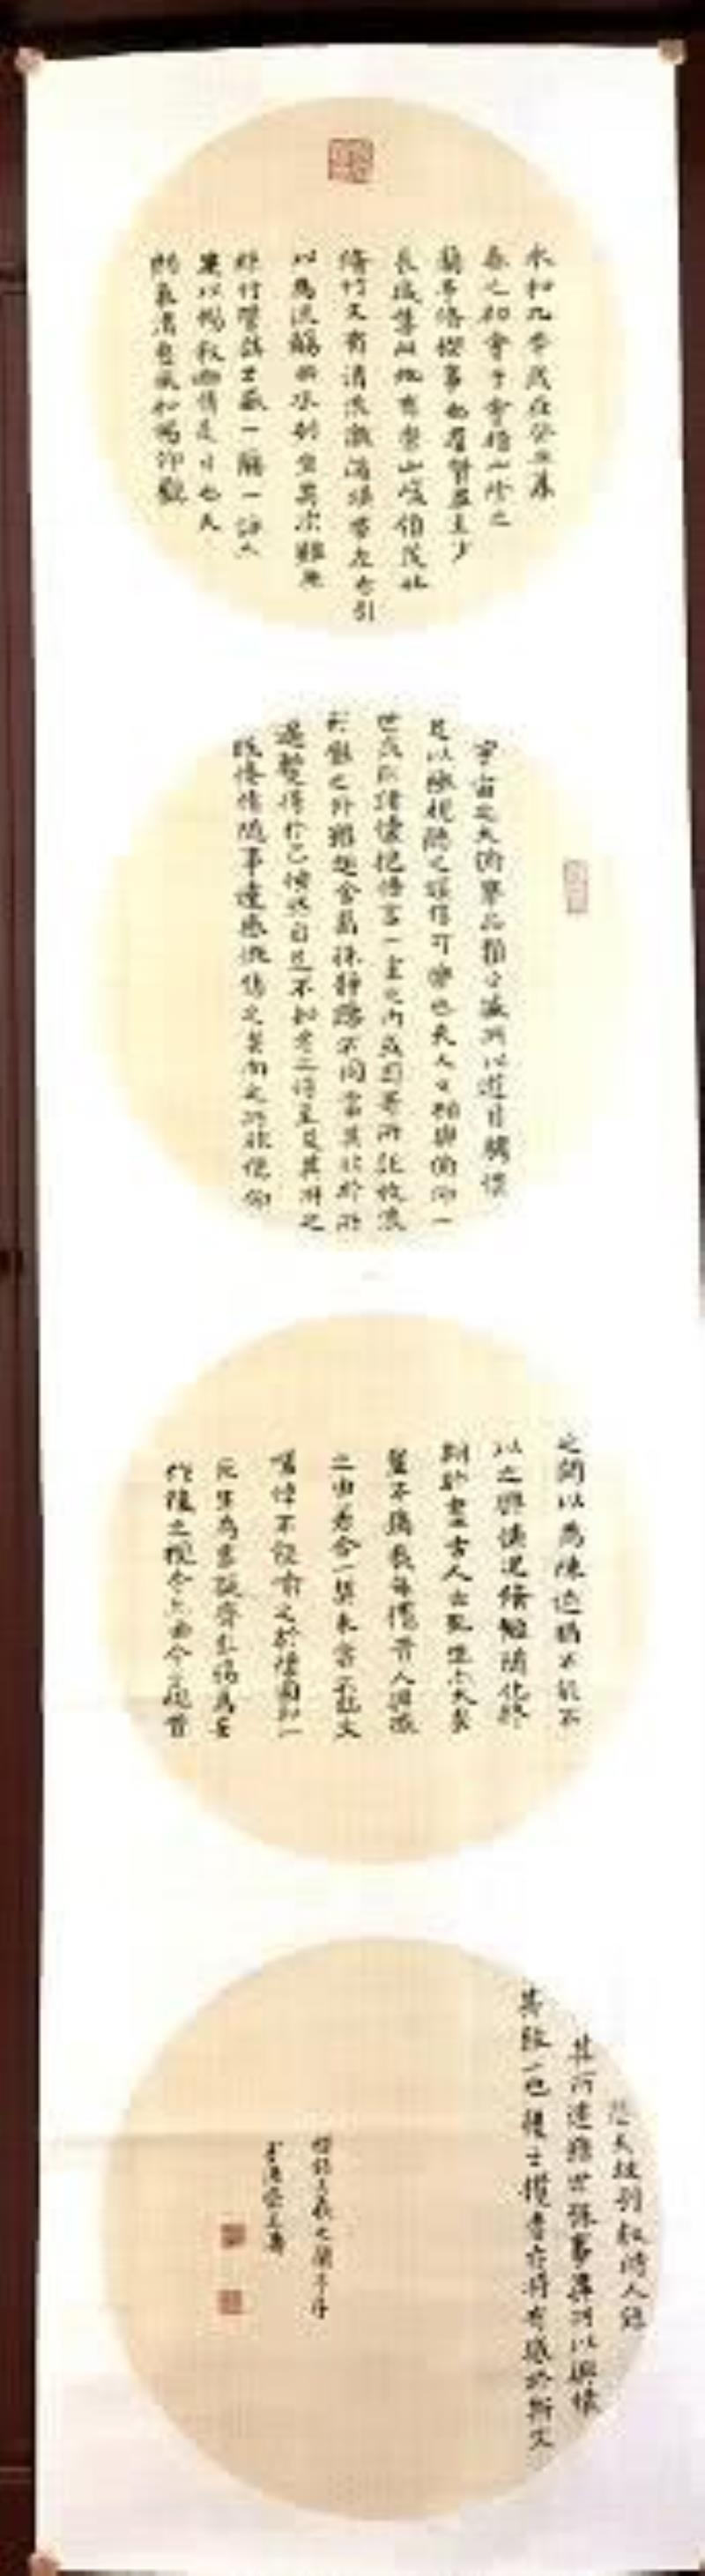 永和九年歲在癸丑暮
春之初會于會稽山陰之
蘭亭脩禊事也羣賢畢至少
長咸集此地有崇山峻領茂林
脩竹又有清流激湍暎帶左右引
以為流觴曲水列坐其次雖無
絲竹管弦之盛一觴一詠亦
足以暢敘幽情是日也天
朗氣清惠風和暢仰觀
宇宙之大俯察品類之盛所以遊目騁懷
足以極視聽之娛信可樂也夫人之相與俯仰一
世或取諸懷抱悟言一室之內或因寄所託放浪
形骸之外雖趣舍萬殊靜躁不同當其欣於所
遇暫得於己快然自足不知老之將至及其所之
既倦情隨事遷感慨係之矣向之所欣俛仰
之間以為陳迹猶不能不
以之興懷況脩短隨化終
期於盡古人云死生亦大矣
豈不痛哉每攬昔人興感
之由若合一契未嘗不臨文
嗟悼不能喻之於懷固知一
死生為虛誕齊彭殤為妄
作後之視今亦由今之視昔
悲夫故列敘時人錄
其所述雖世殊事異所以興懷
其致一也後之攬者亦將有感於斯文
王羲之蘭亭序